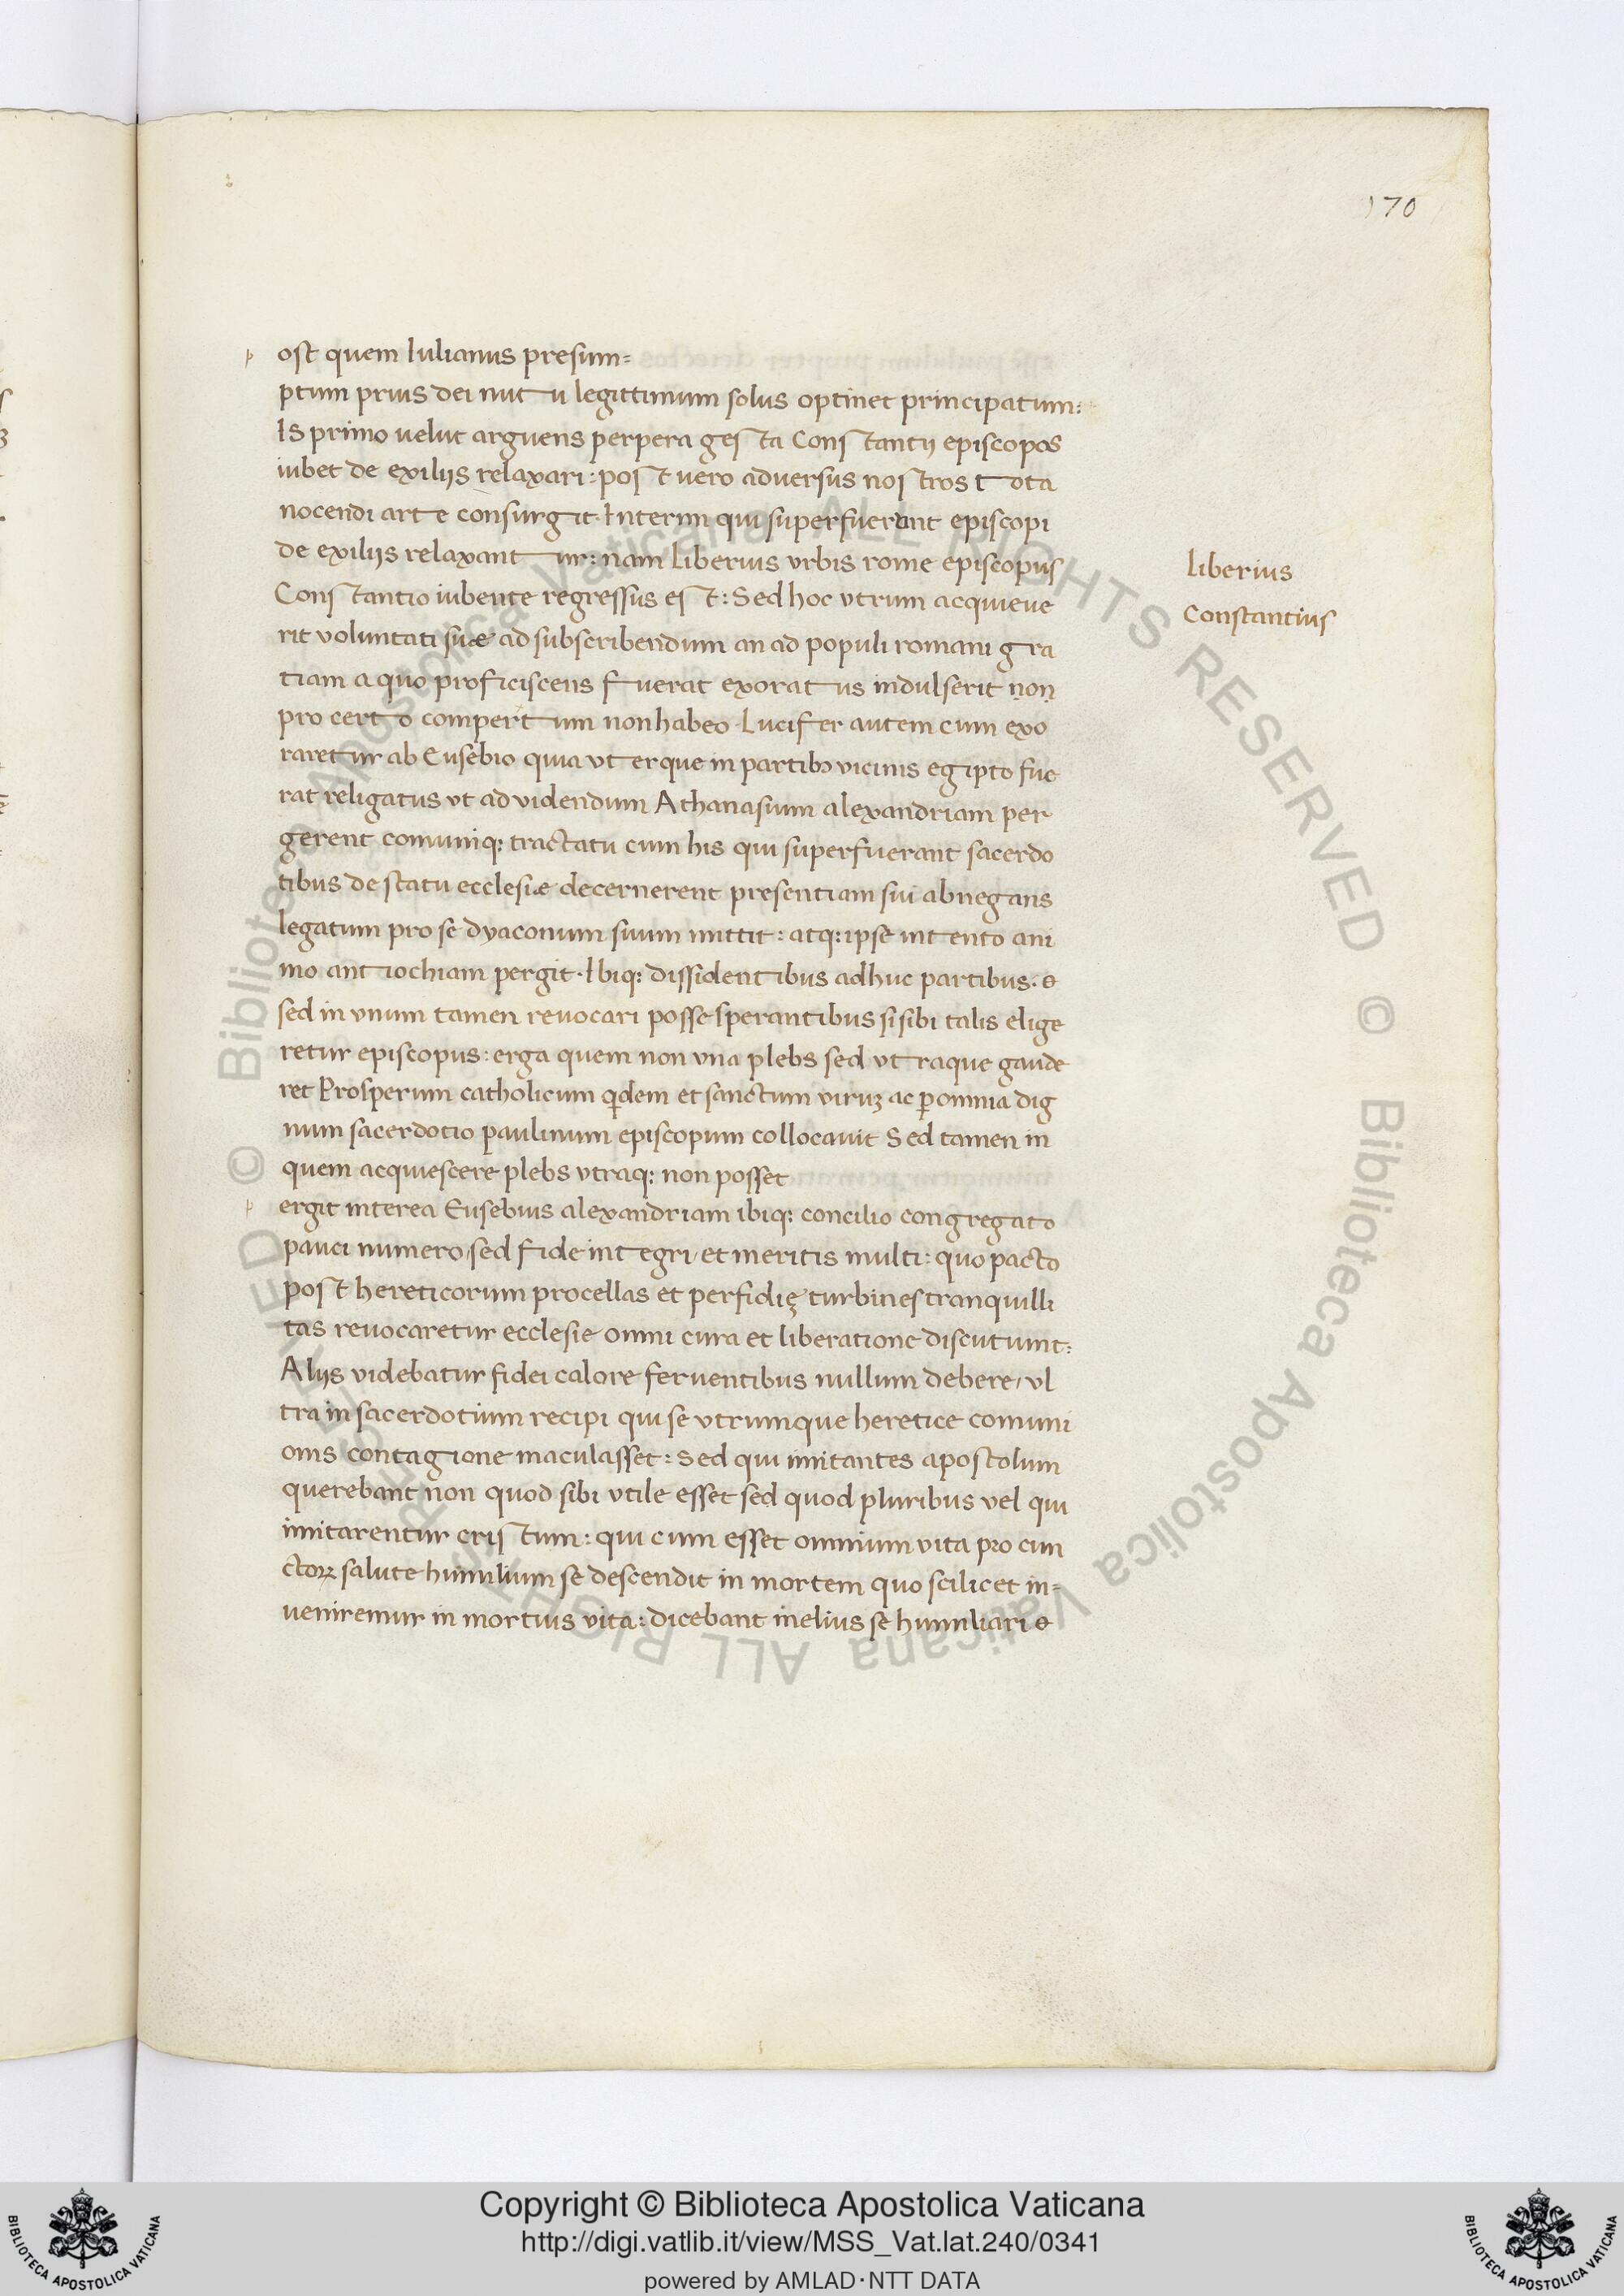 170
p ost quem Iulianus presum=
ptum prius dei nutu legittimum solus optinet principatum:
IS primo uelut arguens perpera gesta Constantij episcopos
iubet de exilijs relaxari: post uero aduersus nostros tota
nocendi arte consurgit. Interim qui superfuerant episcopi
de exilijs relaxantur: nam Liberius vrbis rome episcopus
Constantio iubente regressus est: Sed hoc vtrum acquieue
rit voluntati suæ ad subscribendum an ad populi romani gra
tiam a quo proficiscens fuerat exoratus indulserit non
pro certo compertum non habeo. Lucifer autem cum exo
raretur ab Eusebio quia vterque in partibꝫ vicinis egipto fue
rat religatus vt ad videndum Athanasium alexandriam per
gerent comuniqꝫ tractatu cum his qui superfuerant sacerdo
tibus de statu ecclesiæ decernerent presentiam sui abnegans
legatum pro se dyaconum suum mittit: atqꝫ ipse intento ani
mo antiochiam pergit. Ibiqꝫ dissidentibus adhuc partibus: &
sed in vnum tamen reuocari posse sperantibus si sibi talis elige
retur episcopus: erga quem non vna plebs sed vtraque gaude
ret Prosperum catholicum qͥdem et sanctum viruꝫ ac ꝑ omnia dig
num sacerdotio paulinum episcopum collocauit Sed tamen in
quem acquiescere plebs vtraqꝫ non posset
p ergit interea Eusebius alexandriam ibiqꝫ concilio congregato
pauci numero, sed fide integri, et meritis multi: quo pacto
post hereticorum procellas et perfidię turbines tranquilli
tas reuocaretur ecclesie omni cura et liberatione discutiunt:
Alijs videbatur fidei calore feruentibus nullum debere, vl
tra in sacerdotium recipi qui se vtrumque heretice comuni
onis contagione maculasset: Sed qui imitantes apostolum
querebant non quod sibi vtile esset sed quod pluribus vel qui
imitarentur cristum: qui cum esset omnium vita pro cun
ctoꝝ salute humilium se descendit in mortem quo scilicet in=
ueniremur in mortuis vita: dicebant melius se humiliari &
Liberius
Constantius
© Biblioteca Apostolica Vaticana ALL RIGHTS RESERVED © Biblioteca Apostolica Vaticana ALL RIGHTS RESERVED
Copyright © Biblioteca Apostolica Vaticana
http://digi.vatlib.it/view/MSS_Vat.lat.240/0341
powered by AMLAD·NTT DATA
BIBLIOTECA APOSTOLICA VATICANA
BIBLIOTECA APOSTOLICA VATICANA